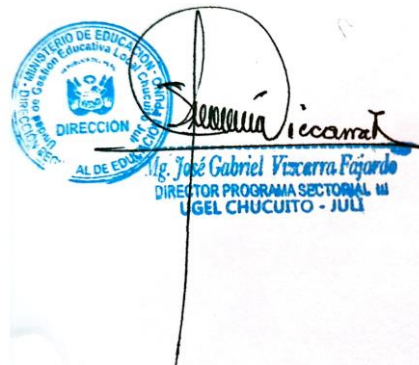 MINISTERIO DE EDUCACIÓN
Unidad de Gestión Educativa Local Chucuito
DIRECCIÓN
AL DE EDUCACIÓN PUNO
Mg. José Gabriel Vizcarra Fajardo
DIRECTOR PROGRAMA SECTORIAL III
UGEL CHUCUITO - JULI